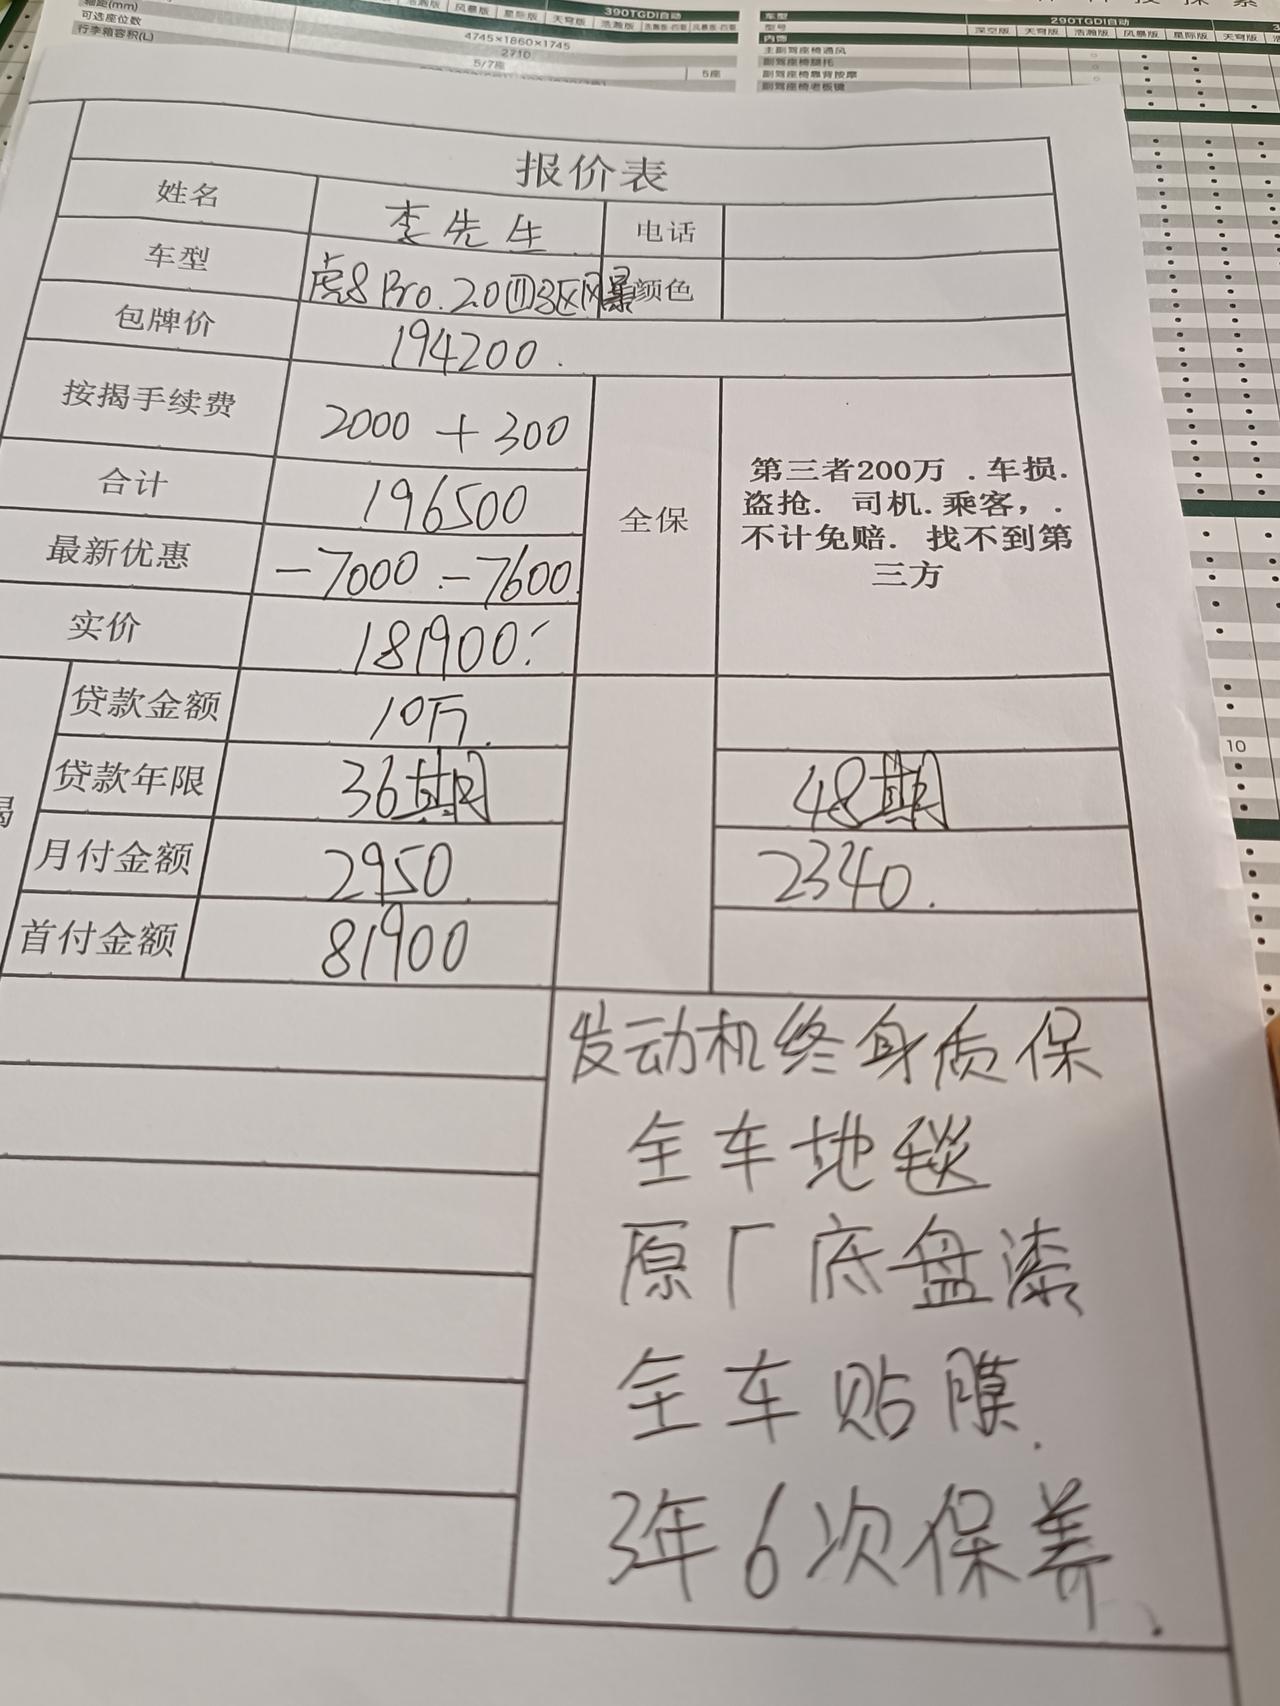 轴距(mm)
可选座位数
行李箱容积(L)
浩瀚版 风暴版 星际版 天穹版 浩瀚版
390TGDI自动
4745×1860×1745
2710
5/7座
5座
车型
290TGDI自动
型号
深空版 天穹版 浩瀚版 风暴版 星际版 天穹版
内饰
主副驾座椅通风
副驾座椅腿托
副驾座椅靠背按摩
副驾座椅老板键
报价表
姓名 李先生 电话
车型 虎8 Pro. 2.0四驱风暴 颜色
包牌价 194200.
按揭手续费 2000 + 300
合计 196500
最新优惠 -7000 -7600
实价 181900.
全保
第三者200万 . 车损.
盗抢. 司机. 乘客, .
不计免赔. 找不到第
三方
贷款金额 10万
贷款年限 36期 48期
月付金额 2950 2340.
首付金额 81900
发动机终身质保
全车地毯
原厂底盘漆
全车贴膜.
3年6次保养.
10